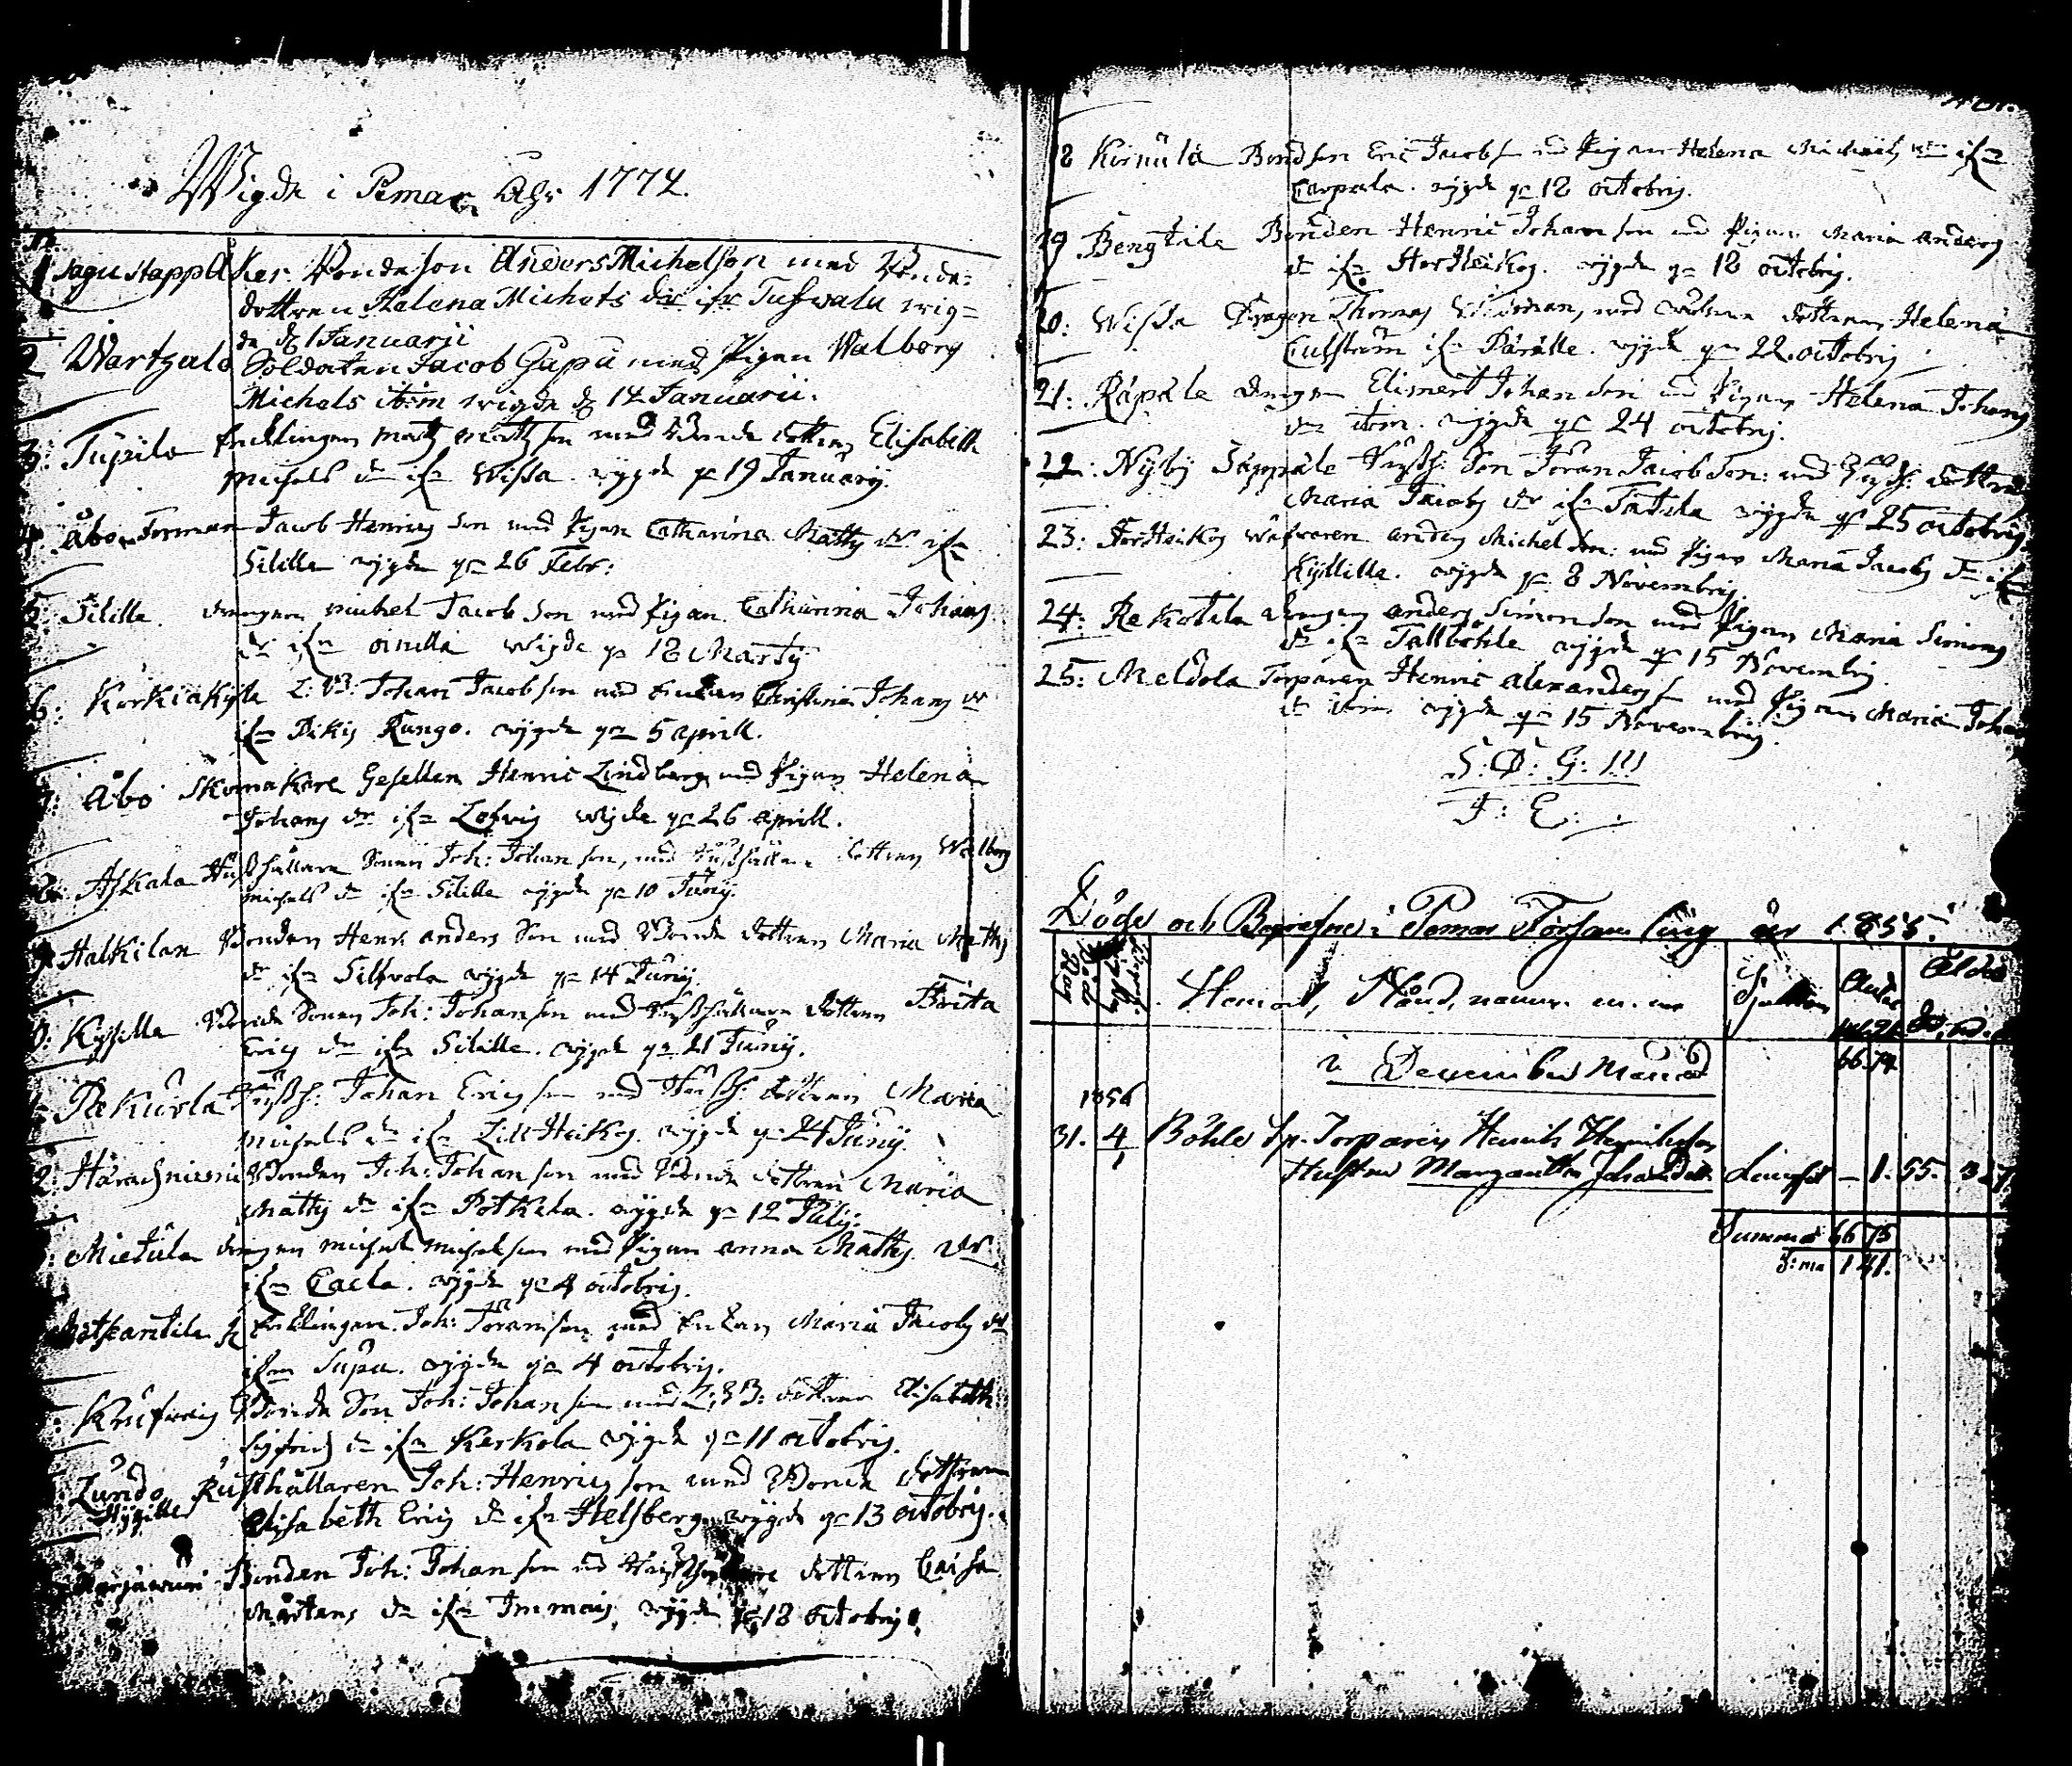 Wigde i Pemar Åhr 1774.
1 Sagu Stappl Åker Bondeson Anders Michelson med Bonde=
dottren Helena Michels dr ifr Tufwala wig=
de d 1 Januarii
2 Wartsala Soldaten Jacob Gapa med Pigan Walborg
Michels ibm wigde d 14 Januarii.
3: Tupila Encklingen Matts Mattsson med Bonde dottren Elisabeth
Michels dr ifn Wissa. wygde pn 19 Januarij.
4: Åbo Forman Jacob Henrics Son med Pigan Catharina Matts dr ifn
Silille wygde pn 26 Febr:
5: Silille. drengen Michel Jacob Son med Pigan Catharina Johans
dr ifn wigde pn 18 Martij
6: Korkiakyle L: B: Johan Jacob son med Enkan Christina Johans dr
ifn Pikis Kungo. wygde pn 5 aprill.
7: Åbo Skomakare Gesellen Henric Lindberg med Pigan Helena
Johans dr ifn Lofvis wigde pn 26 aprill.
8: Askala Rusthållare Sonen Joh: Johan son, med Rusthållare dottren Walborg
Michels dr ifn Silille wygde pn 10 Junij.
9: Halkilan Bonden Henr. anders Son med Bonde dottren Maria Matts
dr ifn Silfvola wygde pn 14 Junij.
0: Kyssilla Bonde Sonen Joh: Johan son med Rusthållare dottren Brita
Erics dr ifn Silille. wygde pn 21 Junij.
Pekurla Rusth: Johan Erics son med Rusth: dottren Maria
Michels dr ifn Lill Heikos. wygde pn 24 Junij.
2: Haraisniemi Bonden Joh: Johan son med Bonde dottren Maria
Matts dr ifn Potkela. wygde pn 12 Julij.
: Mietula drengen Michel Michelson med Pigan anna Matts dr
ifn Caela. wygde pn 4 octobris.
Encklingen. Joh: Jöranson med Enkan Maria Jacobs dr
ifrn Supa. wygde pn 4 octobris.
: Krufvais Bonde Son Joh: Johan son med L: B: dottren Elisabeth
Sigfrids dr ifn Kerkola wygde pn 11 octobris.
Lundo Rusthållaren Joh: Henrics son med Bonde dottren
Elisabeth Erics dr ifn Helsberg wygde pn 13 octobris.
Bonden Joh: Johan son dottren Caisa
Mårtens dr ifn Immais, wygde pn 18 octobris.
18 Kirnula Bondson Eric Jacobs med Pigan Helena Michels ifn
Carpala. wygde pn 18 octobris.
19 Bengtile Bonden Henric Johan son med Pigan Maria anders
dr ifn Storheikos. wygde pn 18 octobris.
20: Wista Dragon Thomas Widman, med dottren Helena
ifn Parälle. wygde pn 22 octobris
21: Räpäle drengen Elimert Johan Son med Pigan Helena Johans
dr ibm. wygde pn 24 octobris.
22: Nyby Säppäle Rusth: Son Jöran Jacob Son: med Rusth: dottren
Maria Jacobs dr ifn Tatila wygde pn 25 octobris.
23: Storheikos wäfvaren anders Michel Son: med Pigan Maria Jacobs dr ifn
Kyllille. wygde pn 8 Novembris.
24: Rekottila drengen anders Simonson med Pigan Maria Simons
dr ifn Tallbohle wygde pn 15 Novembris.
25: Meldola Torparen Henric alexanders med Pigan Maria Johans
dr ibm wygde pn 15 Novembris.
S: D: G: !!!
F: E:
Döde och Begrafne i Pemar Församling år 1855.
Hemort, Stånd, namn m. m. Sjukdom Ålder
i December Månad 66.74
1856
31. 4/1 Böhle Sp. Torparen Henrik Henriksson
Hustru Margaretha Johansdotter Lungsot – 1. 55. 3
Summa 66 75
S:ma 141.